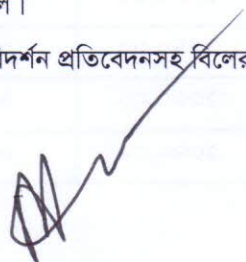 দর্শন প্রতিবেদনসহ বিলের